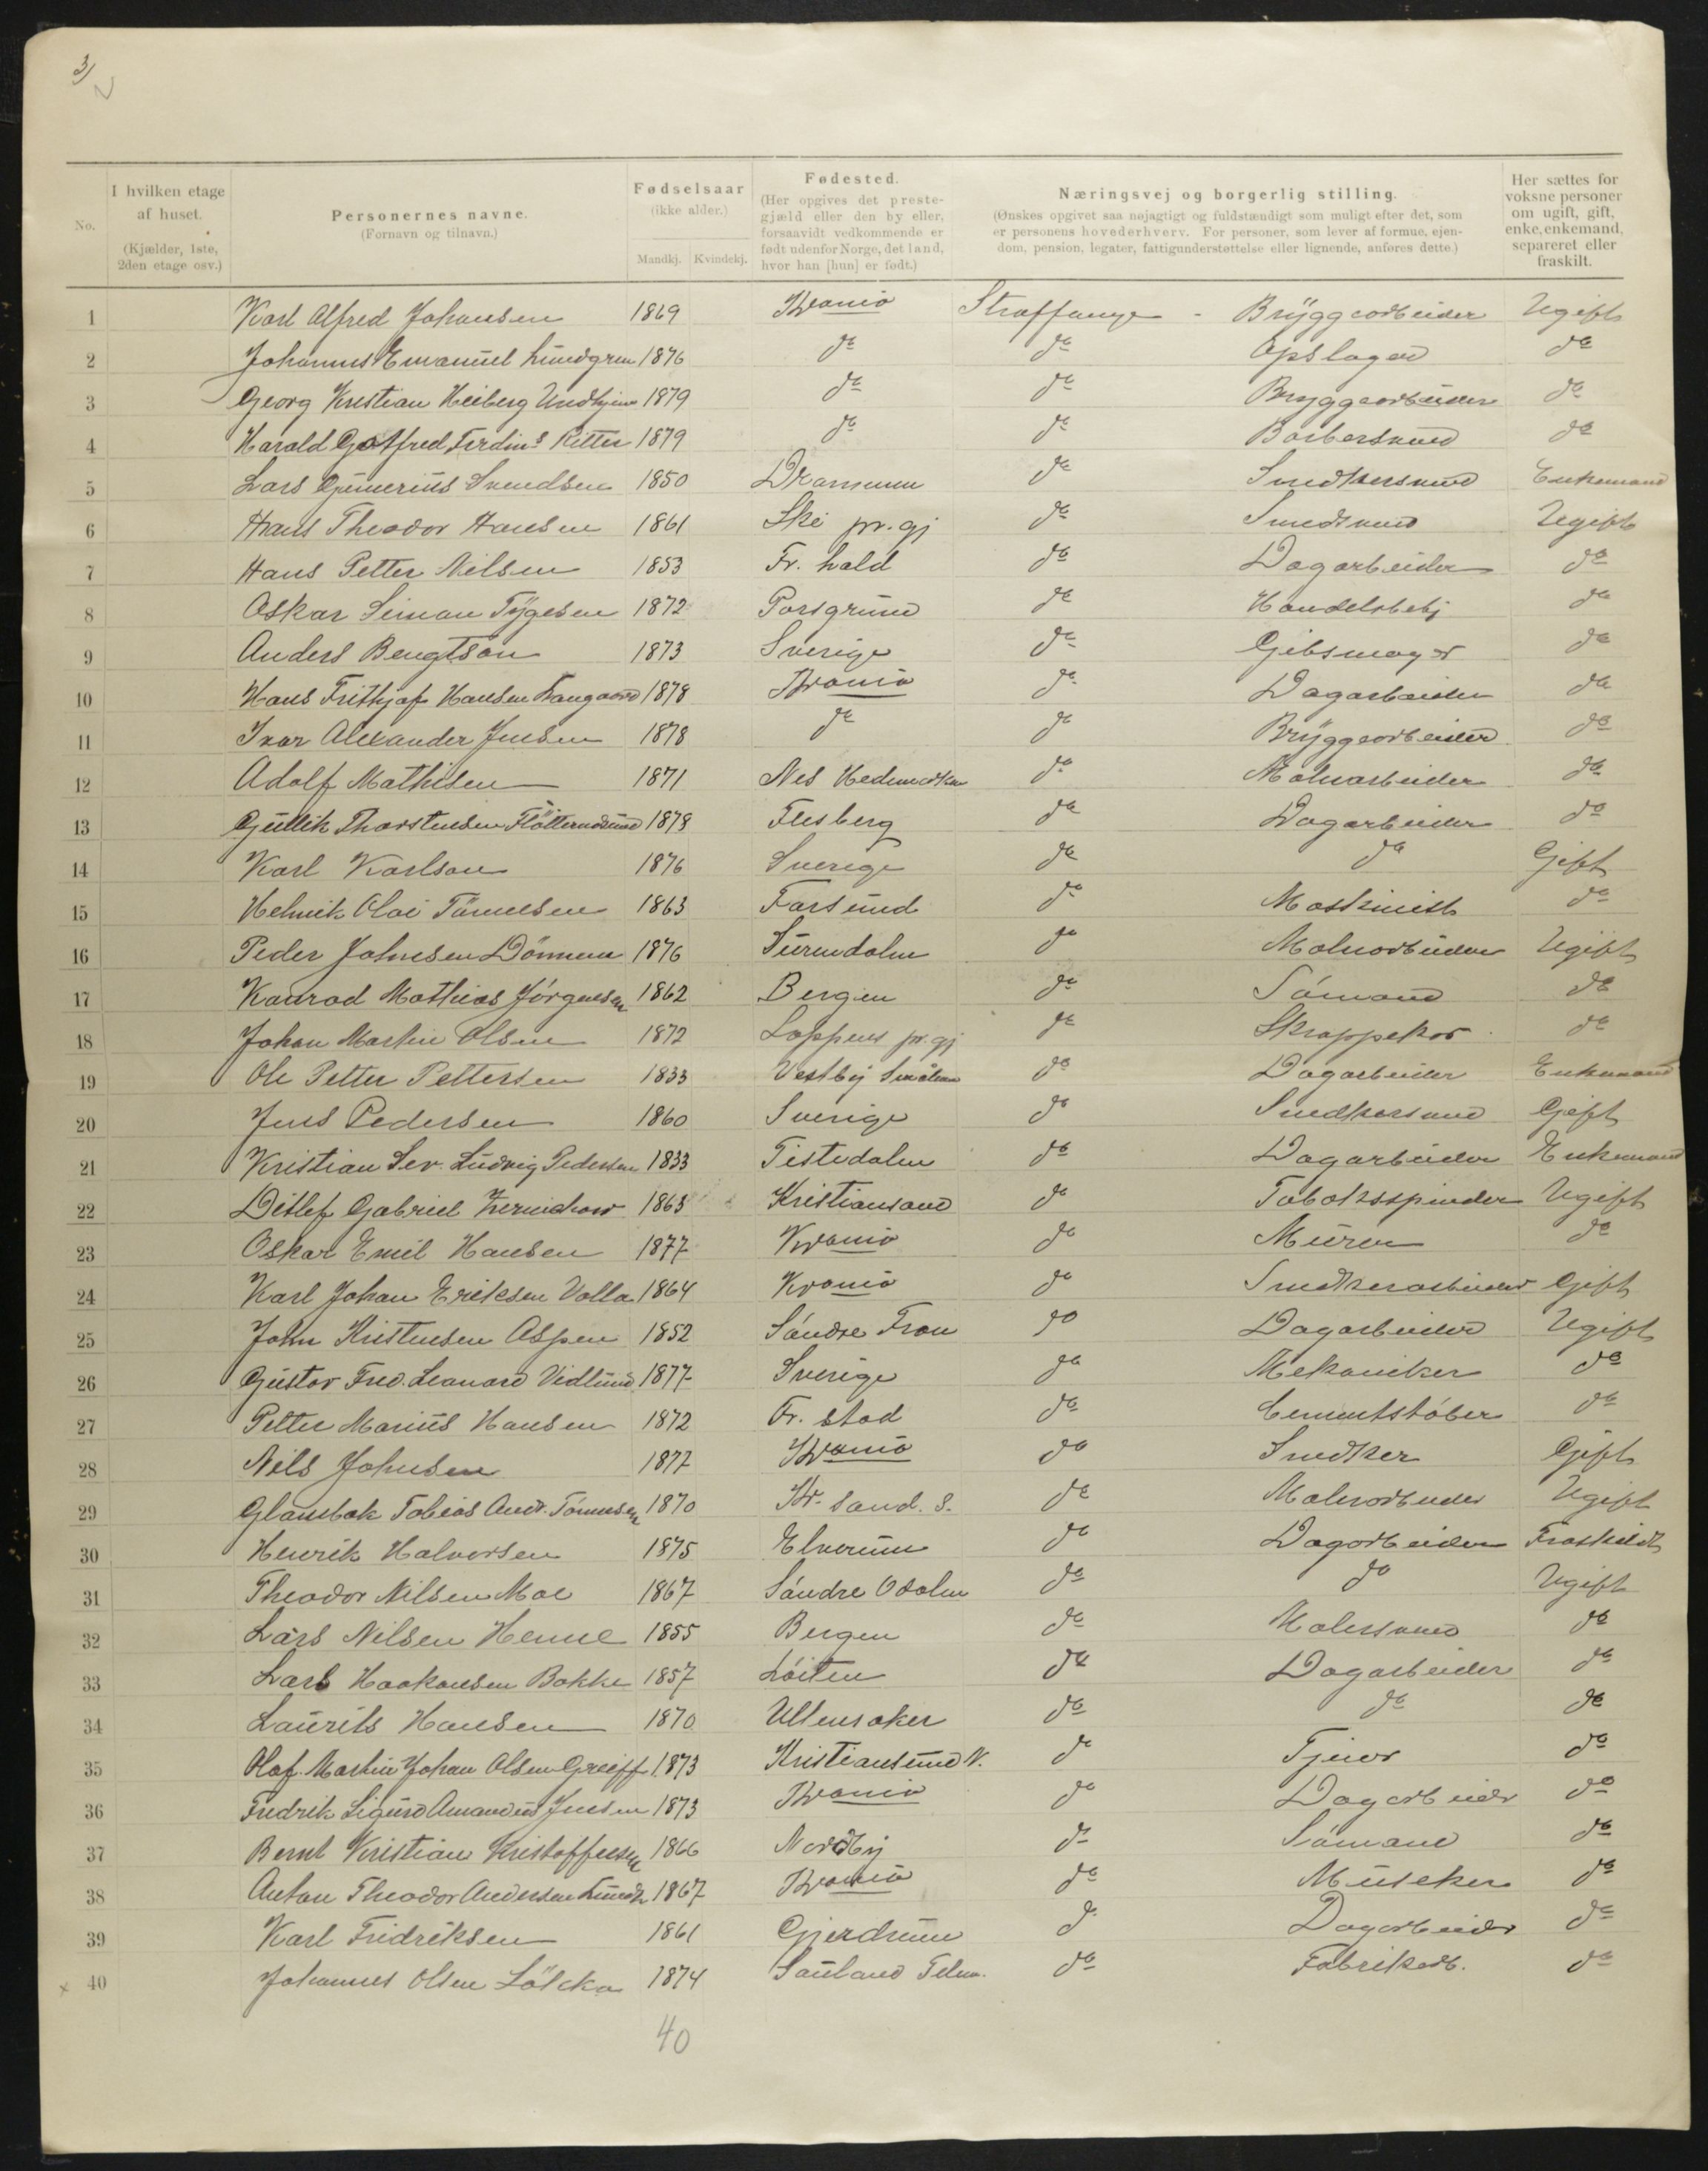 3/
No.
I hvilken etage
af huset.
(Kjælder, 1ste,
2den etage osv.)
Personernes navne.
(Fornavn og tilnavn.)
Fødselsaar
(ikke alder.)
Mandkj. Kvindekj.
Fødested.
(Her opgives det preste-
gjæld eller den by eller,
forsaavidt vedkommende er
født udenfor Norge, det land,
hvor han [hun] er født.)
Næringsvej og borgerlig stilling.
(Ønskes opgivet saa nøjagtigt og fuldstændigt som muligt efter det, som
er personens hovederhverv. For personer, som lever af formue, ejen-
dom, pension, legater, fattigunderstøttelse eller lignende, anføres dette.)
Her sættes for
voksne personer
om ugift, gift,
enke, enkemand,
separeret eller
fraskilt.
1 Karl Alfred Johansen 1869 Krania Straffange - Bryggearbeider Ugift
2 Johannes Emanuel Lundgren 1876 do do Opslager do
3 Georg Kristian Heiberg Undhjem 1879 do do Bryggearbeider do
4 Harald Gotfred Ferdins Ritter 1879 do do Barbersvend do
5 Lars Gunerius Svendsen 1850 Drammen do Snedkersvend Enkemand
6 Hans Theodor Hansen 1861 Ski pr.gj do Smedsvend Ugift
7 Hans Petter Nilsen 1853 Fr. hald do Dagarbeider do
8 Oskar Siman Tygesen 1872 Porsgrund do Handelsbetj do
9 Anders Bengtson 1873 Sverige do Gibsmager do
10 Hans Frithjof Hansen Langaard 1878 Krania do Dagarbeider do
11 Ivar Alexander Jensen 1878 do do Bryggearbeider do
12 Adolf Mathisen 1871 Nes Hedemarken do Malerarbeider do
13 Gullik Thorstensen 1878 Flesberg do Dagarbeider do
14 Karl Karlson 1876 Sverige do do Gift
15 Helmik Olai Tönnesen 1863 Farsund do Maskinist do
16 Peder Johnsen Dönnem 1876 Surendalen do Malerarbeider Ugift
17 Konrad Mathias Jörgensen 1862 Bergen do Sömand do
18 Johan Martin Olsen 1872 Loppens pr.gj do Skrappekar do
19 Ole Petter Pettersen 1833 Vestby Smålene do Dagarbeider Enkemand
20 Jens Pedersen 1860 Sverige do Snedkersvend Gift
21 Kristian Sev. Ludvig Pedersen 1833 Tistedalen do Dagarbeider Enkemand
22 Ditlef Gabriel Zernichow 1863 Kristiansand do Tobaksspinder Ugift
23 Oskar Emil Hansen 1877 Krania do Murer do
24 Karl Johan Eriksen Volla 1864 Krania do Snedkerarbeider Gift
25 John Kristensen Aspen 1852 Söndre Fron do Dagarbeider Ugift
26 Gustav Fred. Leonard Vidlund 1877 Sverige do Mekaniker do
27 Petter Marius Hansen 1872 Fr. stad do Cementstöber do
28 Nils Johnsen 1877 Krania do Snedker Gift
29 Tobias Andr. Tönnesen 1870 Kr. sand. S. do Malerarbeider Ugift
30 Henrik Halvorsen 1875 Elverum do Dagarbeider Fraskildt
31 Theodor Nilsen Moe 1867 Söndre Odalen do do Ugift
32 Lars Nilsen Henne 1855 Bergen do Malersvend do
33 Lars Haakonsen Bakke 1857 Löiten do Dagarbeider do
34 Laurits Hansen 1870 Ullensaker do do do
35 Olaf Martin Johan Olsen Greiff 1873 Kristiansund N. do Tjener do
36 Fredrik Sigurd Amandus Jensen 1873 Krania do Dagarbeider do
37 Bernt Kristian Kristoffersen 1866 Nordby do Sömand do
38 Anton Theodor Andersen Lunde 1867 Krania do Musiker do
39 Karl Fridriksen 1861 Gjerdrum do Dagarbeider do
x 40 Johannes Olsen 1874 Sauland Telm. do Fabrikarb. do
40